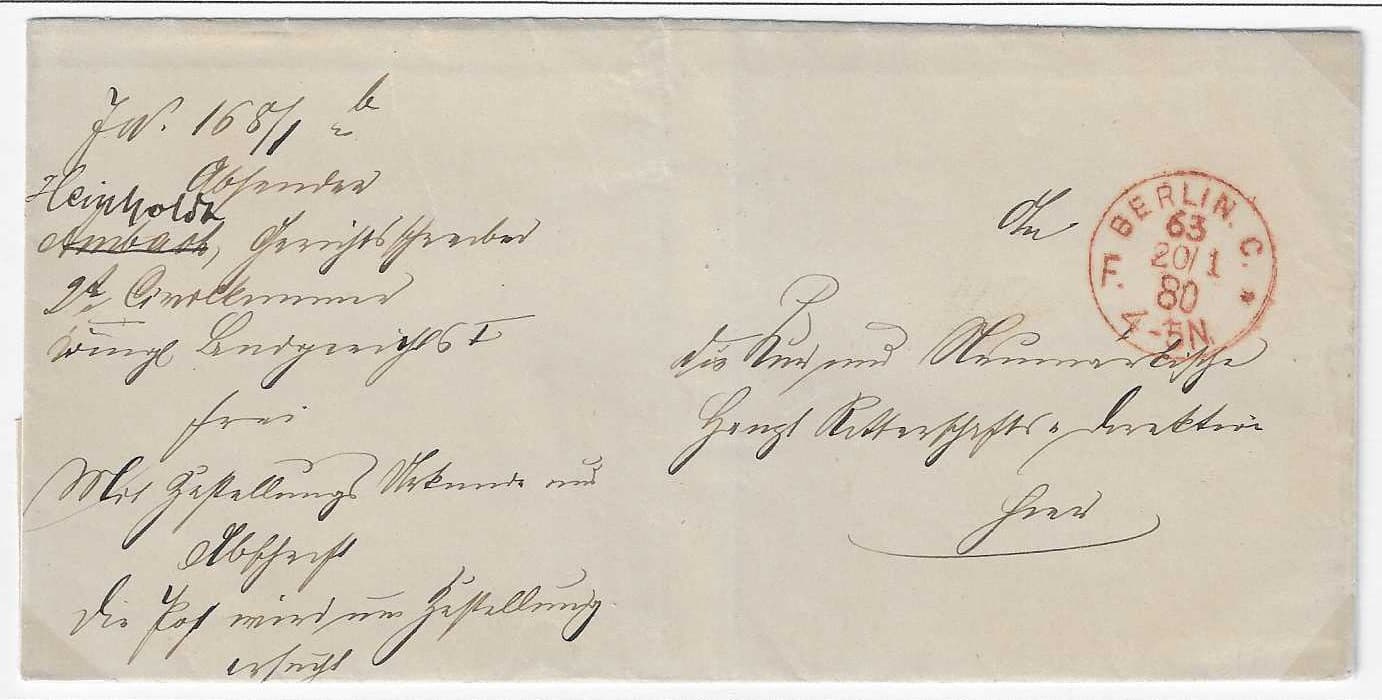 JN. 168/1 b
Absender
Heinholdt
Ambach, Gerichtsschreiber
2t Civilkammer
Königl Landgerichts I
frei
Mit Zustellungs Urkunde und
Abschrift
Die Post wird um Zustellung
ersucht
An
die Kur und Neumärkische
Haupt Ritterschafts-Direktion
hier
F. BERLIN. C. *
63
20/1
80
4-5N.